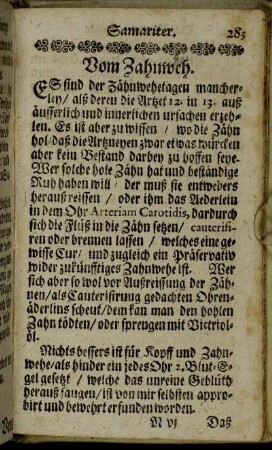 Samariter. 283
Vom Zahnweh.
ES sind der Zähnwehetagen mancher-
ley/ alß deren die Artzet 12. in 13. auß
äusserlich und innerlichen ursachen erzeh-
len. Es ist aber zu wissen / wo die Zähn
hol/ daß die Artzneyen zwar etwas würcken
aber kein Bestand darbey zu hoffen seye.
Wer solche hole Zähn hat und beständige
Ruh haben will / der muß sie entweders
herauß reissen / oder ihm das Aederlein
in dem Ohr Arteriam Carotidis, dardurch
sich die Flüß in die Zähn setzen/ cauterisi-
ren oder brennen lassen / welches eine ge-
wisse Cur / und zugleich ein Präservativ
wider zukünfftiges Zahnwehe ist. Wer
sich aber so wol vor Außreissung der Zäh-
nen/ als Cauterisirung gedachten Ohren-
äderlins scheut/ dem kan man den hohlen
Zahn tödten/ oder sprengen mit Victriol-
öl.
Nichts bessers ist für Kopff und Zahn-
wehe/ als hinder ein jedes Ohr 2. Blut-E-
gel gesetzt / welche das unreine Geblüth
herauß saugen/ ist von mir selbsten appro-
birt und bewehrt erfunden worden.
N vj Daß